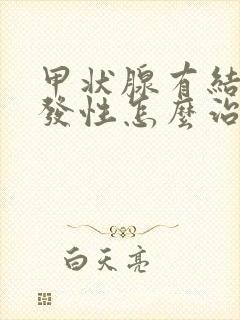 甲状腺有結
發性怎麼治
白天亮